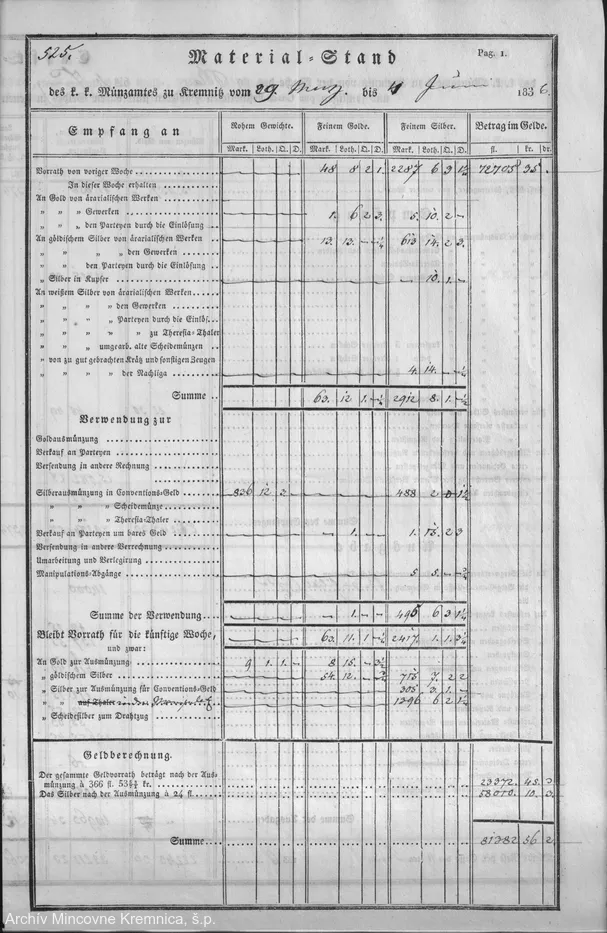 525.
Material-Stand
Pag. 1.
des k. k. Münzamtes zu Kremnitz vom 29. bis 4 Juni 1836.
Empfang an
Rohem Gewichte. Feinem Golde. Feinem Silber. Betrag im Gelde.
Mark. Loth. Q. D. Mark. Loth. Q. D. Mark. Loth. Q. D. fl. kr. dr.
Vorrath von voriger Woche 48 8 2 1. 2287 6 3 72705 35
In dieser Woche erhalten
An Gold von ärarialischen Werken
" " " Gewerken 1. 6 2 3. 5. 10. 2 –
" " " den Parteyen durch die Einlösung
An göldischem Silber von ärarialischen Werken 13. 13. – 613 14. 2 3.
" " " " den Gewerken
" " " den Parteyen durch die Einlösung
" Silber in Kupfer 10. 1. –
An weißem Silber von ärarialischen Werken
" " " " den Gewerken
" " " " Parteyen durch die Einlös.
" " " " " zu Theresia-Thaler
" " " " umgearb. alte Scheidemünzen
" von zu gut gebrachten Krätz und sonstigen Zeugen
" " " " der Nachliga 4 14. –
Summe 63. 12 1. 2912 8. 1.
Verwendung zur
Goldausmünzung
Verkauf an Parteyen
Versendung in andere Rechnung
Silberausmünzung in Conventions-Geld 836 12 3 488 2
" " " Scheidemünze
" " " Theresia-Thaler
Verkauf an Parteyen um bares Geld – 1. – 1. 15. 2 3
Versendung in andere Verrechnung
Umarbeitung und Verlegirung
Manipulations-Abgänge 5 5. –
Summe der Verwendung – 1. – – 495 6 3
Bleibt Vorrath für die künftige Woche, 63. 11. 1 2417. 1. 1.
und zwar:
An Gold zur Ausmünzung 9 1. 1. – 8 15. –
" göldischem Silber 54. 12. – 715 7. 2 2
" Silber zur Ausmünzung für Conventions-Geld 305 3. 1. –
" " auf Thaler 1396 6 2
" Scheidesilber zum Drahtzug
Geldberechnung.
Der gesammte Geldvorrath beträgt nach der Aus-
münzung à 366 fl. kr. 23372 45
Das Silber nach der Ausmünzung à 24 fl. 58010. 10. 3
Summe 81382 56 2
Archív Mincovne Kremnica, š.p.